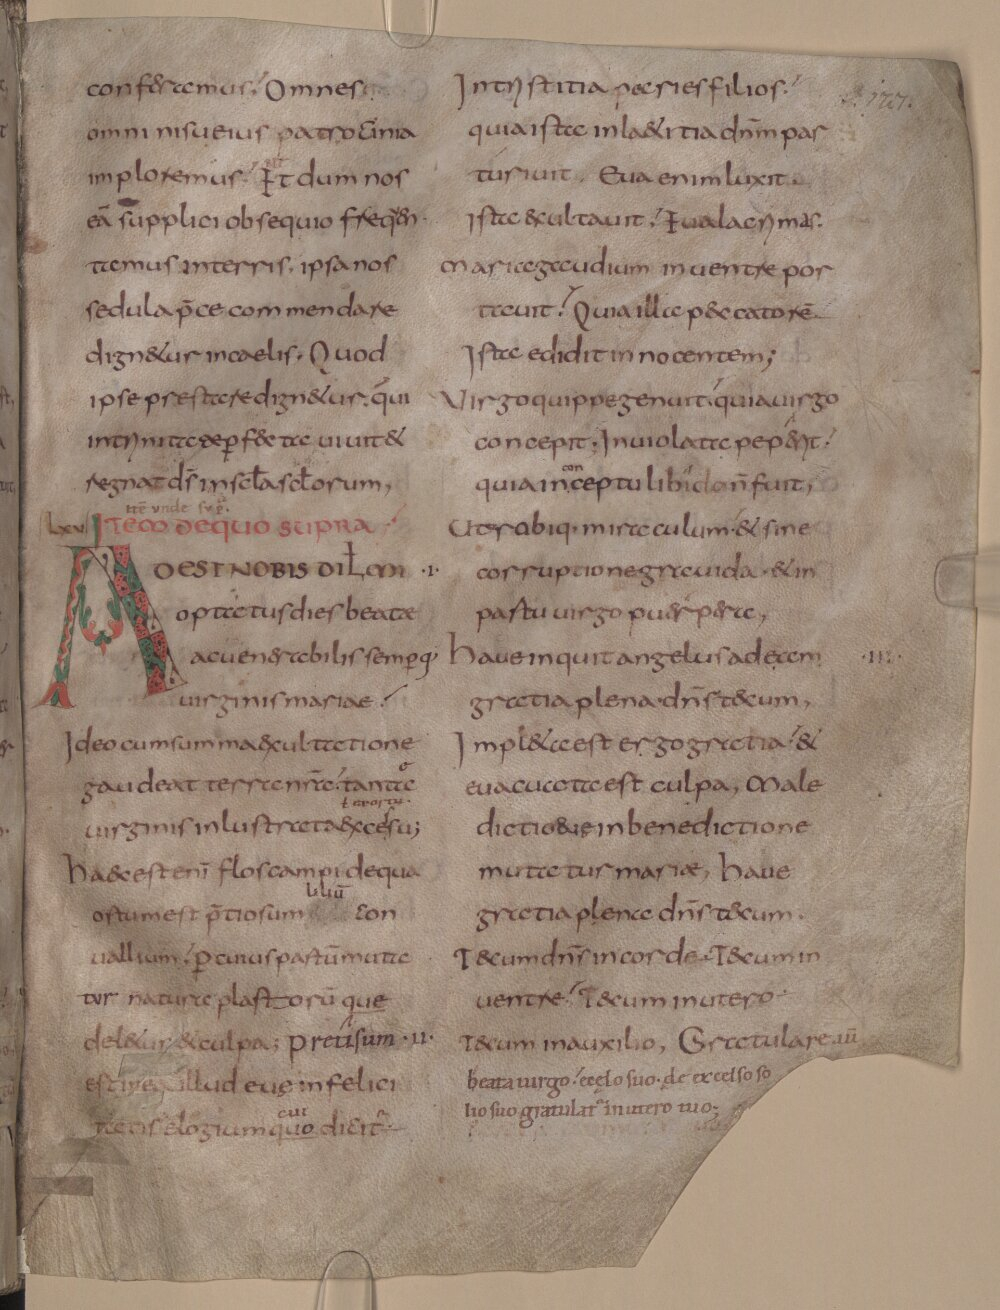 conferamus. Omnes
omni nisu eius patrocinia
imploremus. Ut dum nos
eā supplici obsequio freqūen
temus interris. ipsa nos
sedula p̄ce commendare
dignetur incaelis. Quod
ipse prestare dignetur. qui
intrinitate perfecta vivit &
regnat ds̄ inscl̄a scl̄orum,
Itē unde sup̄
lxv Item de quo supra
Adest nobis dil̄cm .I.
optatus dies beatae
ac venerabilis semperq;
virginis mariae.
Ideo cum summa exultatione
gaudeat terra nr̄a. tante
virginis inlustrata excesu;
Haec est enī flos campi dequa
ortum est p̄tiosum liliū con
vallium. Per cuius partū muta
tur natura plastorū que
deletur & culpa; Pretisum .II.
est illud eue infelici
tatis elogium quo dicit
cui
Intristitia paries filios.
quia ista inlaetitia dnm̄ par
turivit. Eva enim luxit.
Ista exultavit. Eva lacrymas.
Maria gaudium inventre por
tavit. Quia illa peccatorē.
Ista edidit innocentem;
Virgo quippe genuit. quia virgo
concepit. Inviolata peperit.
quia inconceptu libido n̄ fuit,
Utrobiq. miraculum. & sine
corruptione gravida. & in
partu virgo puerpera,
Have inquit angelus ad eam .III.
gratia plena. dn̄s tecum,
Impleta est ergo gratia. &
evacuata est culpa, Male
dictio eue in benedictione
mutatur mariae, Have
gratia plena dn̄s tecum.
Tecum dn̄s in corde. Tecum in
ventre. Tecum in utero.
Tecum inauxilio, Gratulare
beata virgo. celo suo. de excelso so
lio suo gratulat in utero tuo;